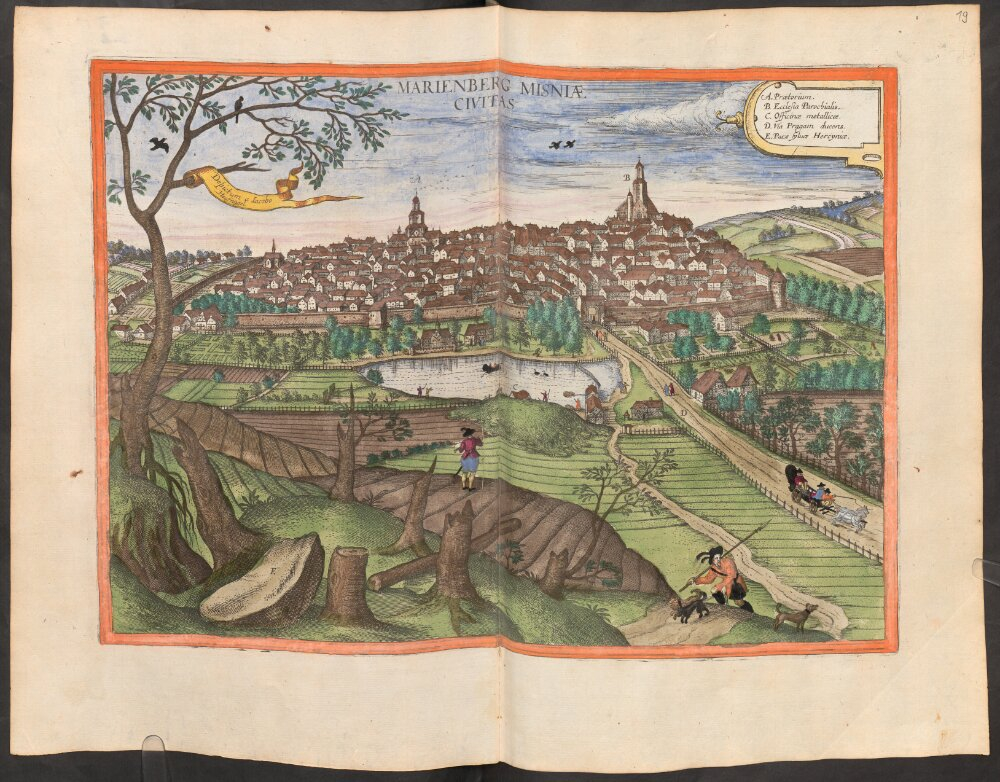 19
MARIENBERG MISNIÆ
CIVITAS
A. Prætorium.
B. Ecclesia Parochialis.
C. Officinæ metallicæ.
D. Via Pragam ducens.
E. Pars sylvæ Hercynicæ.
Depictum
a Iacobo
Hufnagel
A
B
D
E